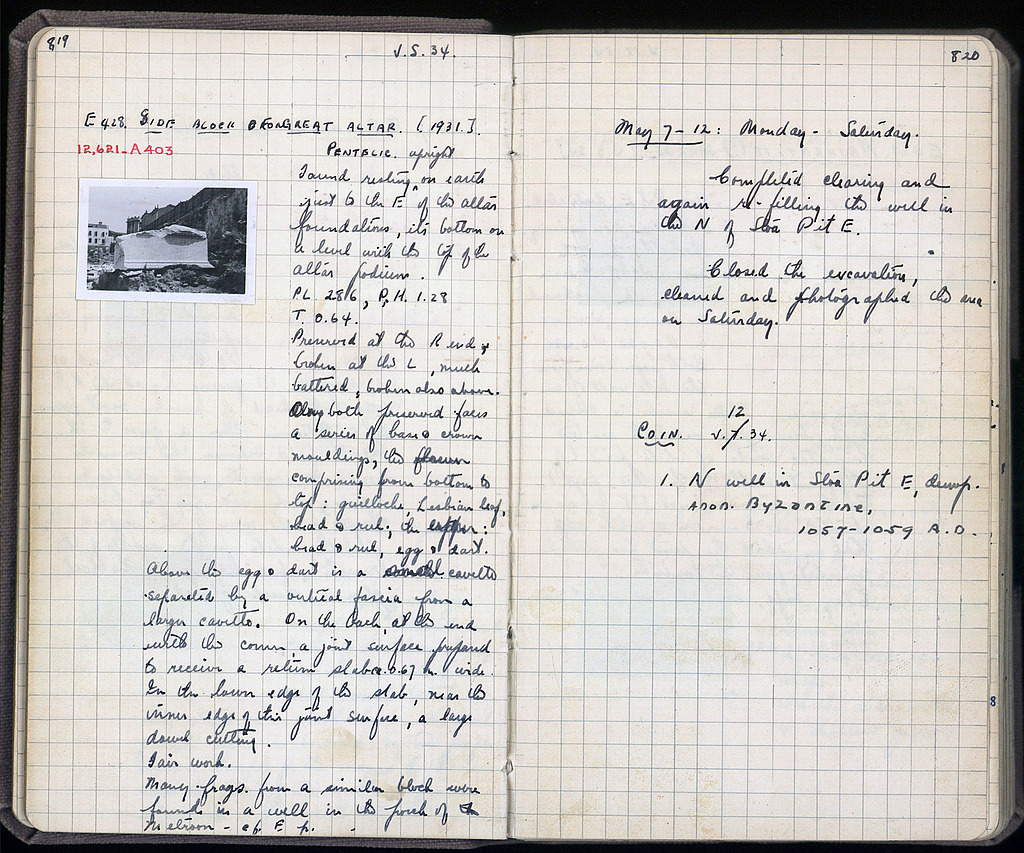 819
V.S. 34.
E 428. SIDE BLOCK GREAT ALTAR. [1931].
12,621-A403
PENTELIC. upright
Found resting on earth
just to the E of the altar
foundations, its bottom on
a level with the top of the
altar podium.
P.L. 2.86, P.H. 1.28
T. 0.64.
Preserved at the R end,
broken at the L, much
battered, broken also above.
Along both preserved faces
a series of base & crown
mouldings, the
comprising from bottom to
top: guilloche, Lesbian leaf,
bead & reel; the upper:
bead & reel, egg & dart.
Above the egg & dart is a cavetto
separated by a vertical fascia from a
larger cavetto. On the back, at the end
with the corner, a joint surface prepared
to receive a return slab ca. 0.67 m. wide.
In the lower edge of the slab, near the
inner edge of this joint surface, a large
dowel cutting.
Fair work.
Many frags. from a similar block were
found in a well in the porch of the
Metroon - cf. E p. -
820
May 7-12: Monday - Saturday.
Completed clearing and
again re-filling the well in
the N of Stoa Pit E.
Closed the excavation,
cleaned and photographed the area
on Saturday.
12
COIN. V. 34.
1. N well in Stoa Pit E, dump.
Anon. Byzantine,
1057-1059 A.D.